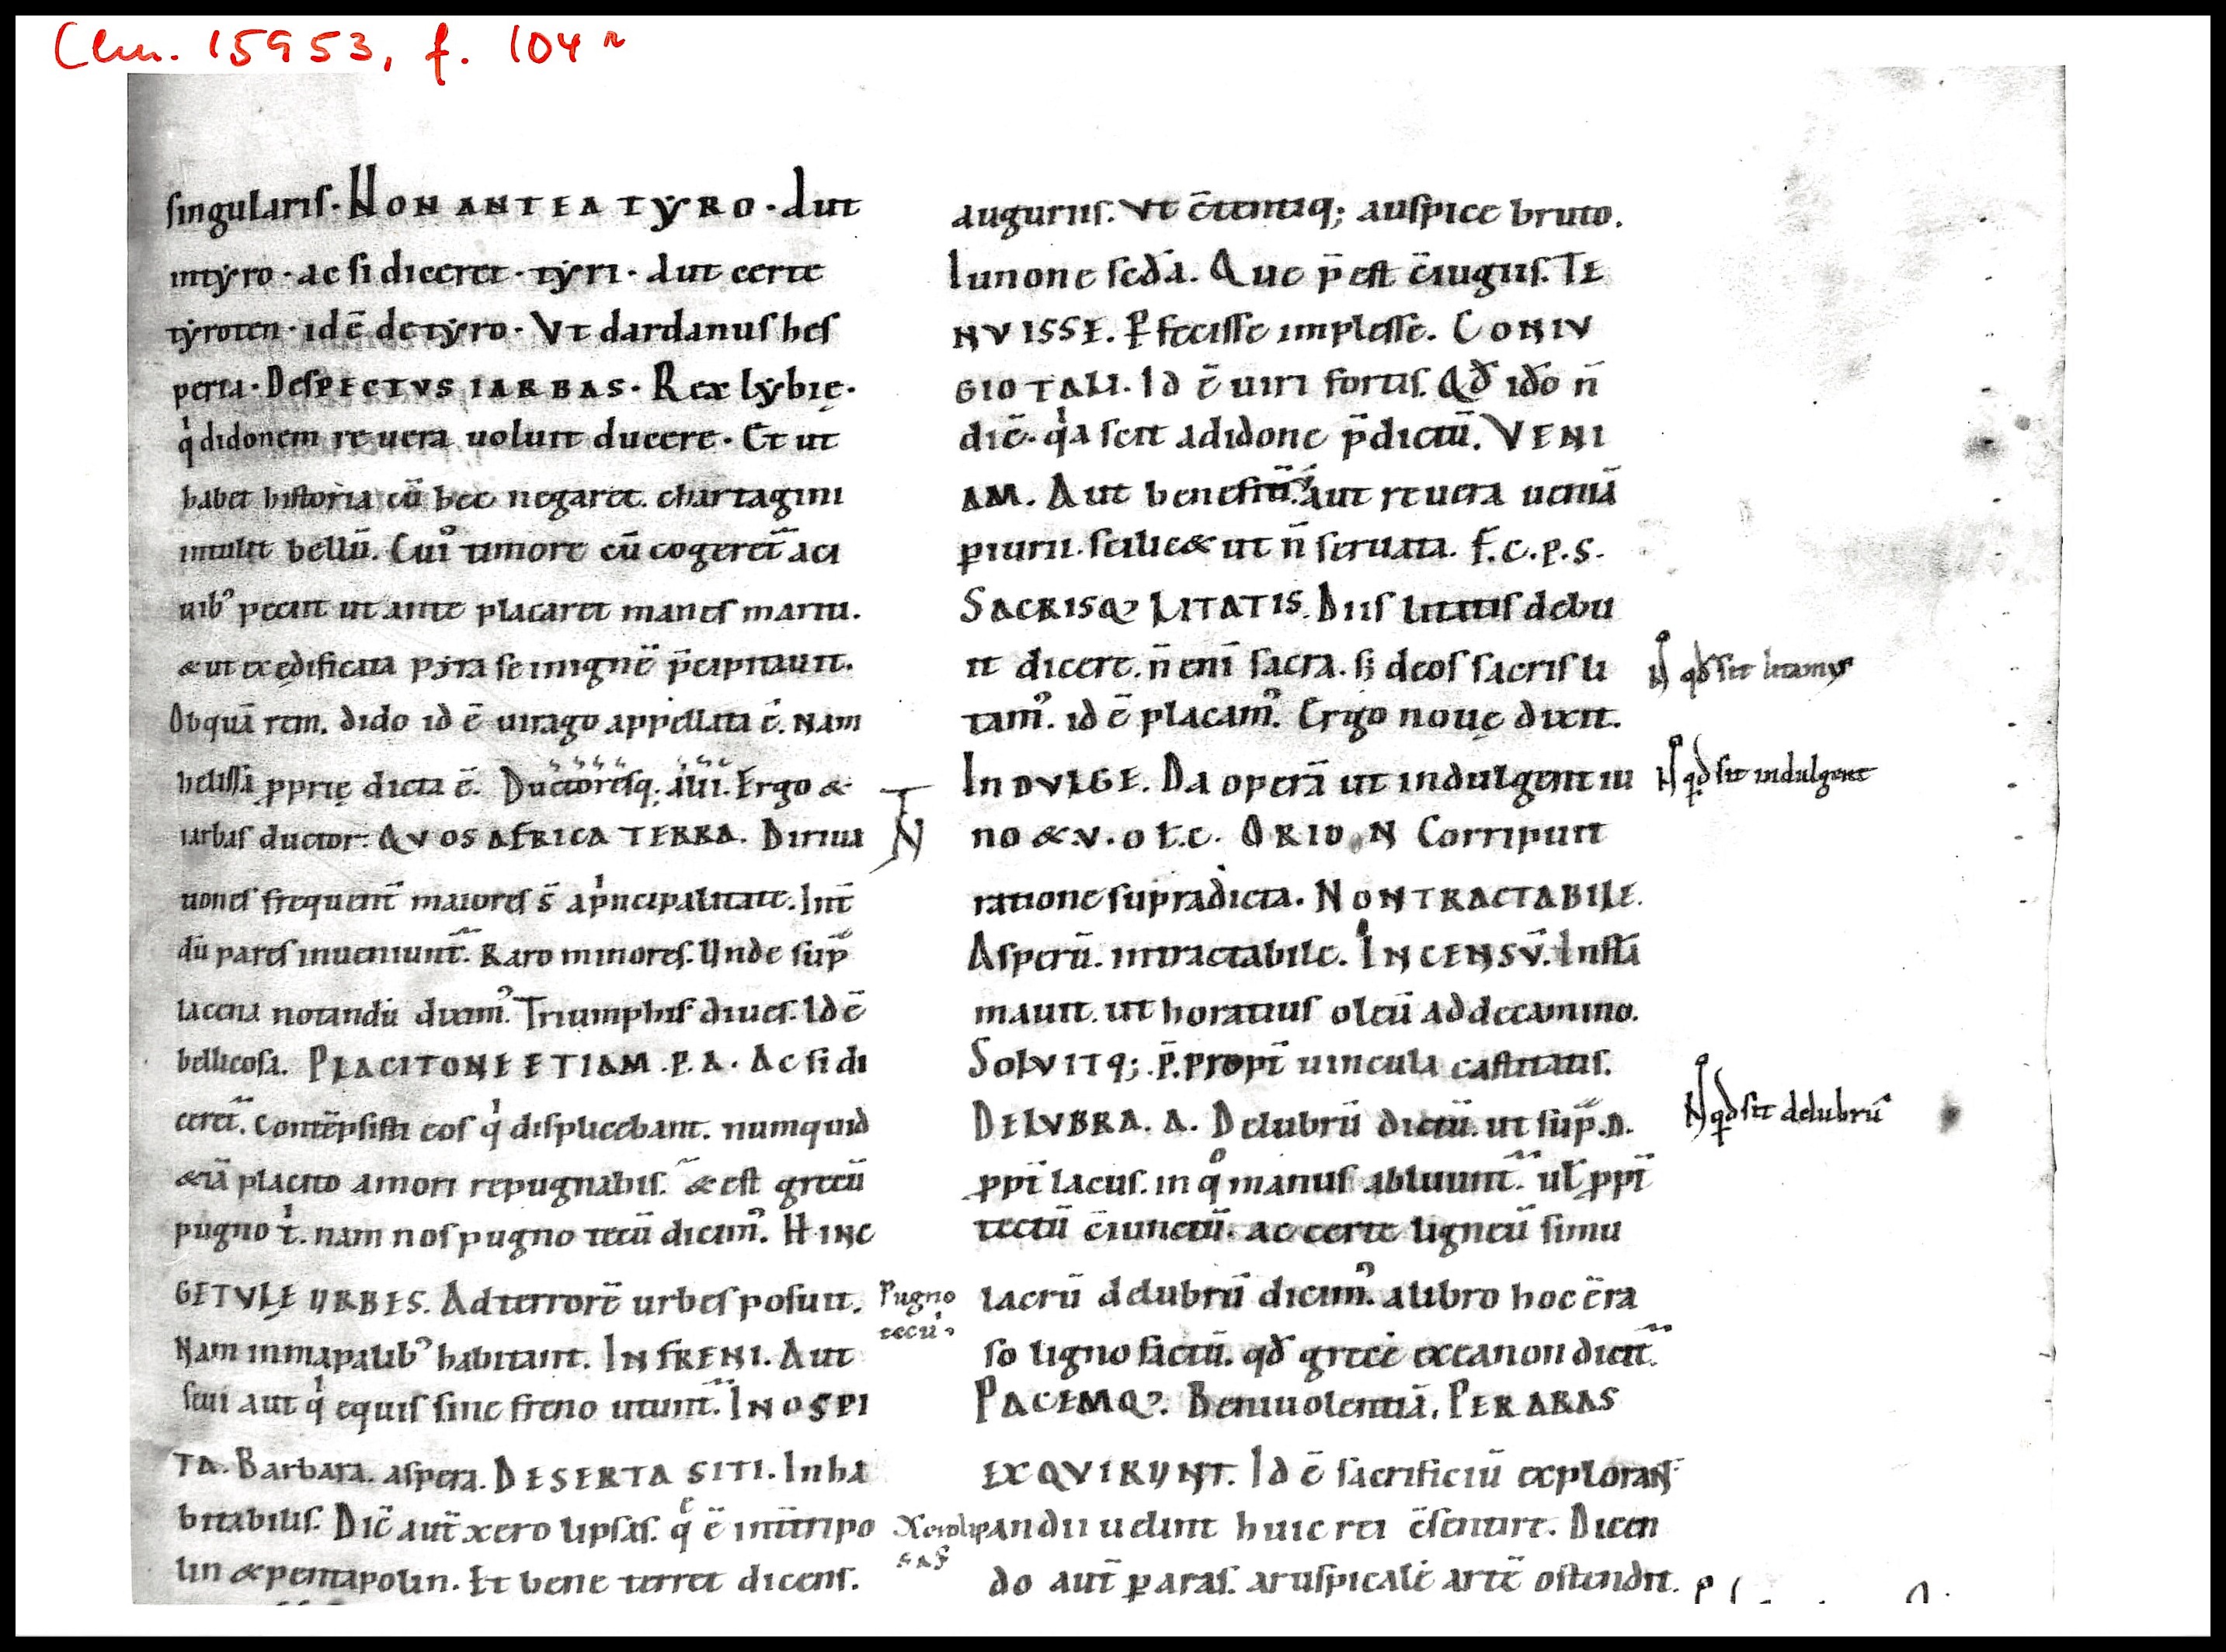 Clm. 15953, f. 104r
singularis. NON ANTEA TYRO. Aut
intyro. ac si diceret. tyri. Aut certe
tyroten. id ē de tyro. Vt dardanus hes
peria. DESPECTVS IARBAS. Rex lybię.
q didonem re uera uoluit ducere. Et ut
habet historia cū hec negaret. chartagini
intulit bellū. Cui⁹ timore cū cogeret̄ aci
uib⁹ peciit ut ante placaret manes mariti.
& ut exędificata pyra se inignē p̄cipitauit.
Obquā rem. dido id ē uirago appellata ē. Nam
helissa pprię dicta ē. Ductoresq; alii. Ergo &
iarbas ductor. QVOS AFRICA TERRA. Diriua
tiones frequent̄ maiores s̄ aprincipalitate. Int̄
dū pares inueniunt̄. Raro minores. Unde sup̄
lacena notandū dixim⁹. Triumphis diues. Id ē
bellicosa. PLACITONE ETIAM. P. A. Ac si di
ceret̄. Contēpsisti eos q displicebant. numquid
& iā placito amori repugnabis. & est grecū
pugno t. nam nos pugno tecū dicim⁹. HINC
GETVLĘ URBES. Adterrorē urbes posuit.
Pugno
tecū
Nam inmapalib⁹ habitant. INFRENI. Aut
seui aut q equis sine freno utunt̄. INOSPI
TA. Barbara. aspera. DESERTA SITI. Inha
bitabilis. Dic̄ aut̄ xero lipsas. q ē int̄ tripo
Xerolip
sas
lin & pentapolin. Et bene terret dicens.
auguriis. Vt c̄tentaq; auspice bruto.
Iunone secđa. Que p̄est c̄iugiis. TE
NVISSE. P fecisse implesse. CONIV
GIO TALI. Id ē uiri fortis. Qđ iđo n̄
dic̄. qa scit adidone p̄dictū. VENI
AM. Aut beneficiū. aut re uera ueniā
piurii. scilic& ut n̄ seruata. f. c. p. s.
SACRISQ⁊ LITATIS. Diis litatis debu
it dicere. n̄ eni sacra. s; deos sacris li
N qđ sit litamus
tam⁹. id ē placam⁹. Ergo nouę dixit.
INDVLGE. Da operā ut indulgent iu
N qđ sit indulgere
no & .v. o t.c. ORION Corripuit
ratione supradicta. NONTRACTABILE.
Asperū. intractabile. INCENSV̄. Inflā
mauit. ut horatius oleū adde camino.
SOLVITQ; .P̄. propt̄ uincula castitatis.
DELVBRA. A. Delubrū dictū. ut sup̄. D.
N qđ sit delubrū
ppt̄ lacus. in qo manus abluunt̄. ul ppt̄
tectū c̄iunctū. ac certe ligneū simu
lacrū delubrū dicim⁹. alibro hoc ē ra
so ligno factū. qđ grece excanon dicit̄.
PACEMQ⁊. Beniuolentiā. PER ARAS
EXQVIRUNT. Id ē sacrificiū explorant
andii uelint huic rei c̄sentire. Dicen
do aut̄ p aras. aruspicale artē ostendit.